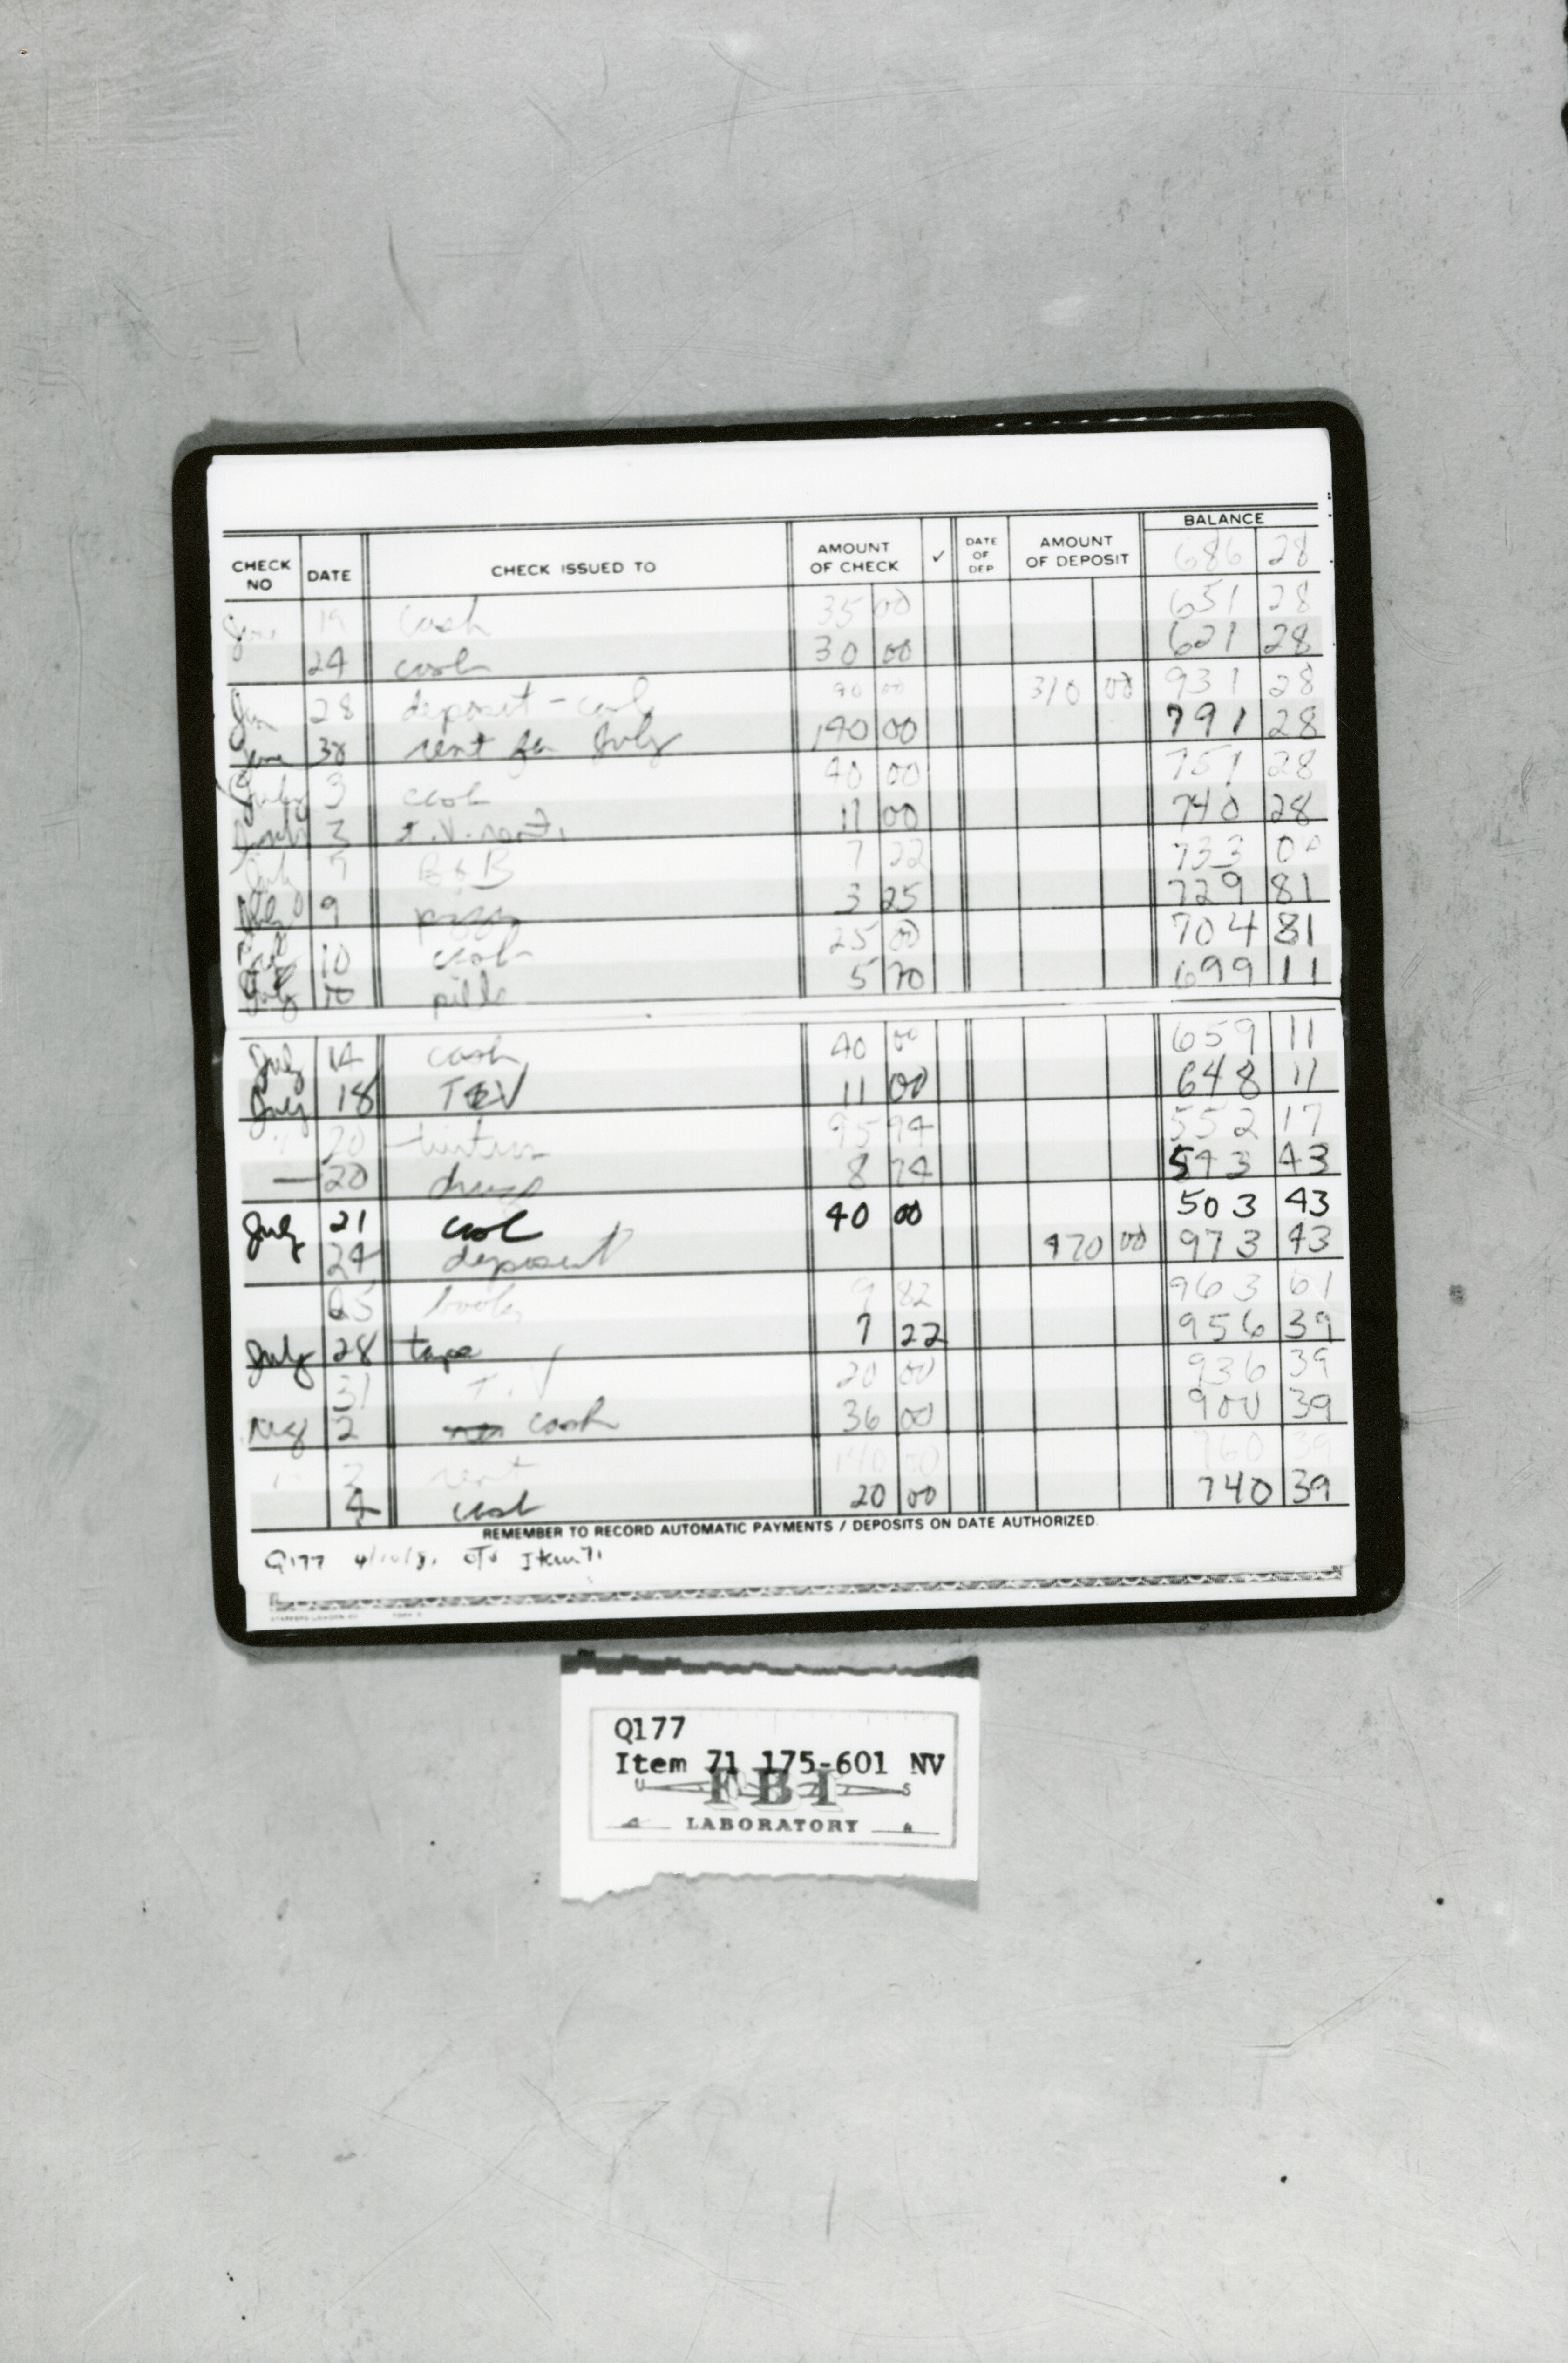 BALANCE
CHECK NO DATE CHECK ISSUED TO AMOUNT OF CHECK ✓ DATE OF DEP AMOUNT OF DEPOSIT 686 28
June 19 cash 35 00 651 28
24 cash 30 00 621 28
Jun 28 deposit - cash 90 00 310 00 931 28
June 30 rent for July 140 00 791 28
July 3 cash 40 00 751 28
3 T.V. rent. 11 00 740 28
July 7 22 733 00
July 9 pizza 3 25 729 81
10 cash 25 00 704 81
July 10 pills 5 70 699 11
July 14 cash 40 00 659 11
July 18 TV 11 00 648 11
" 20 95 94 552 17
— 20 8 74 543 43
July 21 cash 40 00 503 43
24 deposit 470 00 973 43
25 books 9 82 963 61
July 28 tape 7 22 956 39
31 T.V 20 00 936 39
Aug 2 cash 36 00 900 39
" 2 rent 140 00 760 39
4 cash 20 00 740 39
REMEMBER TO RECORD AUTOMATIC PAYMENTS / DEPOSITS ON DATE AUTHORIZED.
Q177 Item 71
Q177
Item 71 175-601 NV
U FBI S
LABORATORY